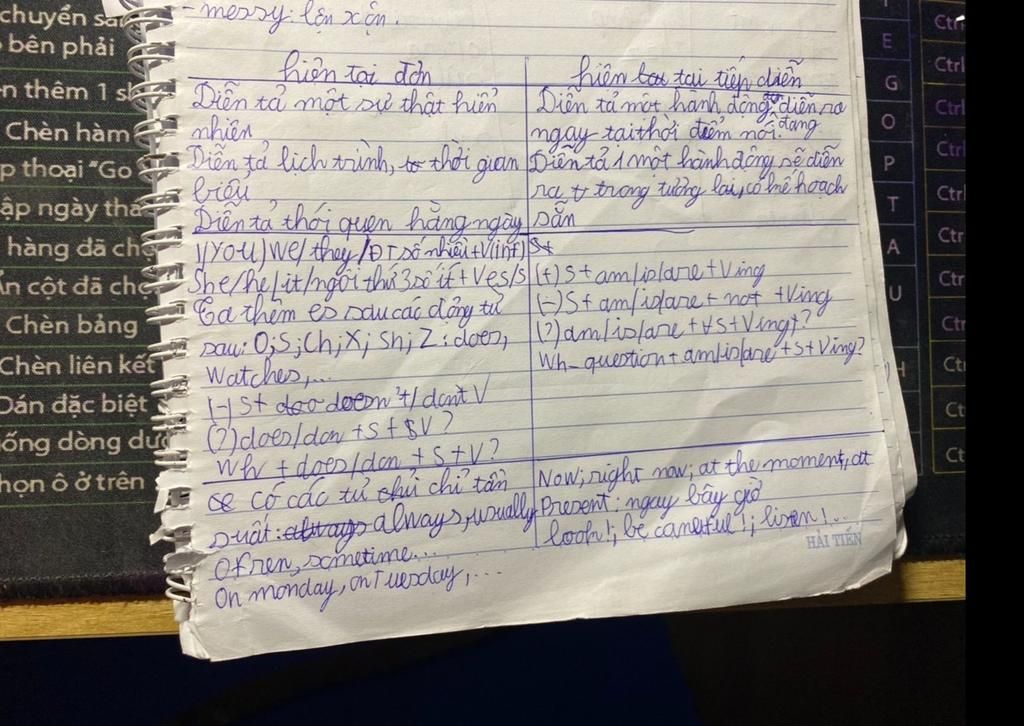 chuyển sa
bên phải
n thêm 1 s
Chèn hàm
p thoại "Go
ập ngày thá
hàng đã chọ
n cột đã chọ
Chèn bảng
Chèn liên kết
Dán đặc biệt
ống dòng dướ
họn ô ở trên
- messy: lộn xộn.
hiện tại đơn
Diễn tả một sự thật hiển
nhiên
Diễn tả lịch trình, thời gian
biểu
Diễn tả thói quen hằng ngày
I/You/We/they/DT số nhiều+V(inf)
She/he/it/ngôi thứ 3 số ít + Ves/s
Ta thêm es sau các động từ
sau: O; S; Ch; X; Sh; Z: does,
Watches,...
(-) S+ doesn't/don't V
(?) does/don + S + V?
Wh + does/don + S + V?
có các từ chỉ tần
suất: always, usually
Ofren, sometime...
On monday, on Tuesday,...
hiện tại tiếp diễn
Diễn tả một hành động đang diễn ra
ngay tại thời điểm nói.
Diễn tả 1 một hành động sẽ diễn
ra trong tương lai, có kế hoạch
sẵn
(+) S + am/is/are + Ving
(-) S + am/is/are + not + Ving
(?) am/is/are + S + Ving+?
Wh_question + am/is/are + S + Ving?
Now; right now; at the moment, at
Present: ngay bây giờ
look!; be careful!; lisen!...
HẢI TIẾN
T
E
G
O
P
T
A
U
H
Ctr
Ctrl
Ctrl
Ctrl
Ctrl
Ctrl
Ctr
Ctr
Ctr
Ctr
Ct
Ct